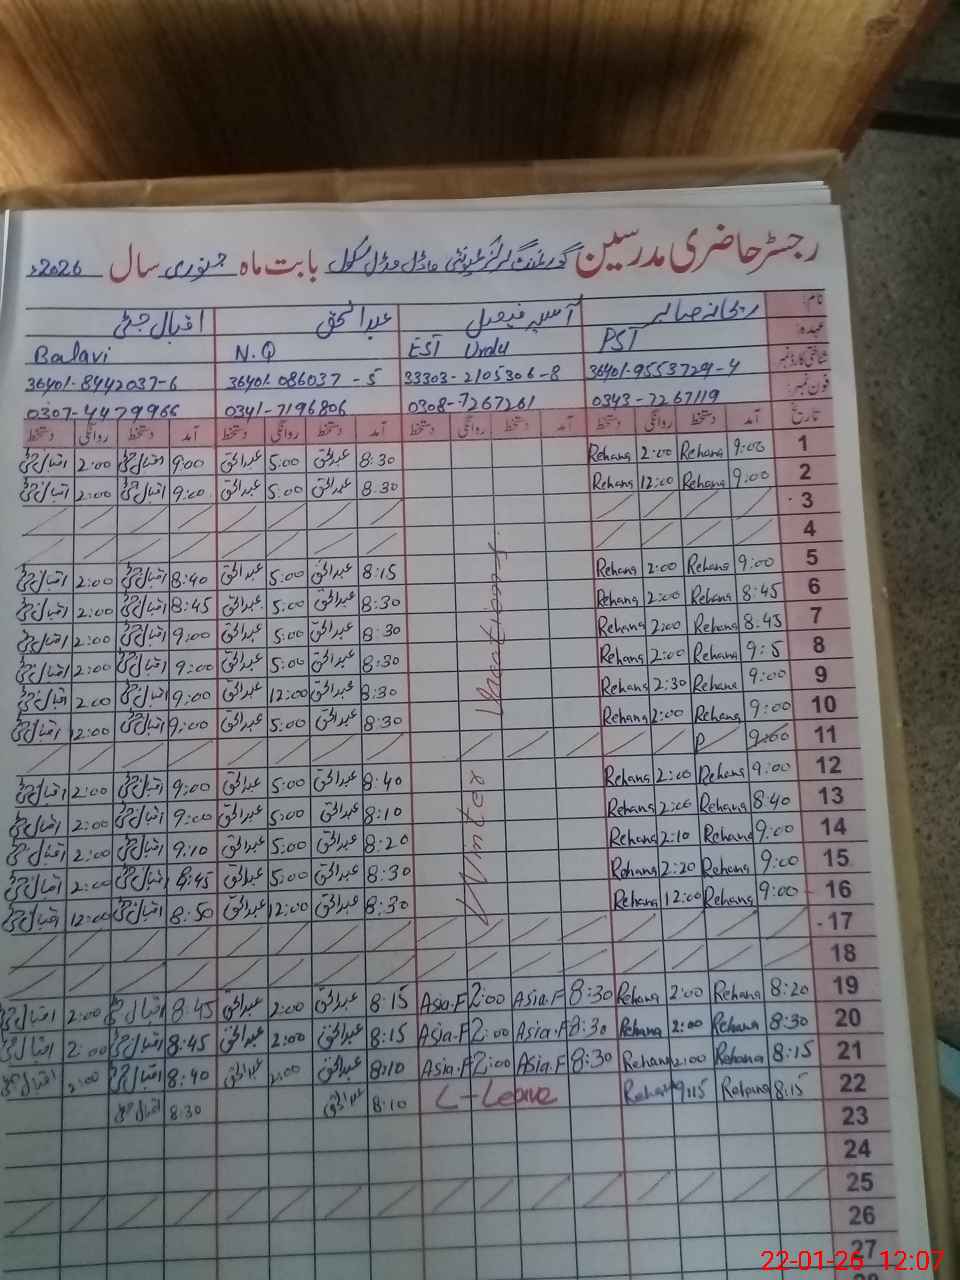 رجسٹر حاضری مدرسین گورنمنٹ گرلز کمیونٹی ماڈل مڈل سکول بابت ماہ جنوری سال 2026ء
نام: ریحانہ صابر آسیہ فیصل عبدالحق اقبال
عہدہ: PST EST Urdu N.Q Balavi
شناختی کارڈ نمبر 36401-9553729-4 33303-2105306-8 36401-086037-5 36401-8442037-6
فون نمبر: 0343-7267119 0308-7267261 0341-7196806 0307-4479966
تاریخ آمد دستخط روانگی دستخط دستخط روانگی دستخط آمد دستخط روانگی دستخط آمد دستخط روانگی دستخط
1 9:00 Rehana 2:00 Rehana 8:30 عبدالحق 5:00 عبدالحق 9:00 اقبال 2:00 اقبال
2 9:00 Rehana 12:00 Rehana 8:30 عبدالحق 5:00 عبدالحق 9:00 اقبال 2:00 اقبال
3
4
5 9:00 Rehana 2:00 Rehana 8:15 عبدالحق 5:00 عبدالحق 8:40 اقبال 2:00 اقبال
6 8:45 Rehana 2:00 Rehana 8:30 عبدالحق 5:00 عبدالحق 8:45 اقبال 2:00 اقبال
7 8:45 Rehana 2:00 Rehana 8:30 عبدالحق 5:00 عبدالحق 9:00 اقبال 2:00 اقبال
8 9:5 Rehana 2:00 Rehana 8:30 عبدالحق 5:00 عبدالحق 9:00 اقبال 2:00 اقبال
9 9:00 Rehana 2:30 Rehana 8:30 عبدالحق 12:00 عبدالحق 9:00 اقبال 2:00 اقبال
10 9:00 Rehana 2:00 Rehana 8:30 عبدالحق 5:00 عبدالحق 9:00 اقبال 12:00 اقبال
11 9:00 R
12 9:00 Rehana 2:00 Rehana 8:40 عبدالحق 5:00 عبدالحق 9:00 اقبال 2:00 اقبال
13 8:40 Rehana 2:00 Rehana 8:10 عبدالحق 5:00 عبدالحق 9:00 اقبال 2:00 اقبال
14 9:00 Rehana 2:10 Rehana 8:20 عبدالحق 5:00 عبدالحق 9:10 اقبال 2:00 اقبال
15 9:00 Rehana 2:20 Rehana 8:30 عبدالحق 5:00 عبدالحق 8:45 اقبال 2:00 اقبال
16 9:00 Rehana 12:00 Rehana 8:30 عبدالحق 12:00 عبدالحق 8:50 اقبال 12:00 اقبال
Winter Vacations
17
18
19 8:20 Rehana 2:00 Rehana 8:30 Asia.F 2:00 Asia.F 8:15 عبدالحق 2:00 عبدالحق 8:45 اقبال 2:00 اقبال
20 8:30 Rehana 2:00 Rehana 8:30 Asia.F 2:00 Asia.F 8:15 عبدالحق 2:00 عبدالحق 8:45 اقبال 2:00 اقبال
21 8:15 Rehana 2:00 Rehana 8:30 Asia.F 2:00 Asia.F 8:10 عبدالحق 2:00 عبدالحق 8:40 اقبال 2:00 اقبال
22 8:15 Rehana 9:15 Rehana L-Leave 8:10 عبدالحق 8:30 اقبال
23
24
25
26
27
22-01-26 12:07